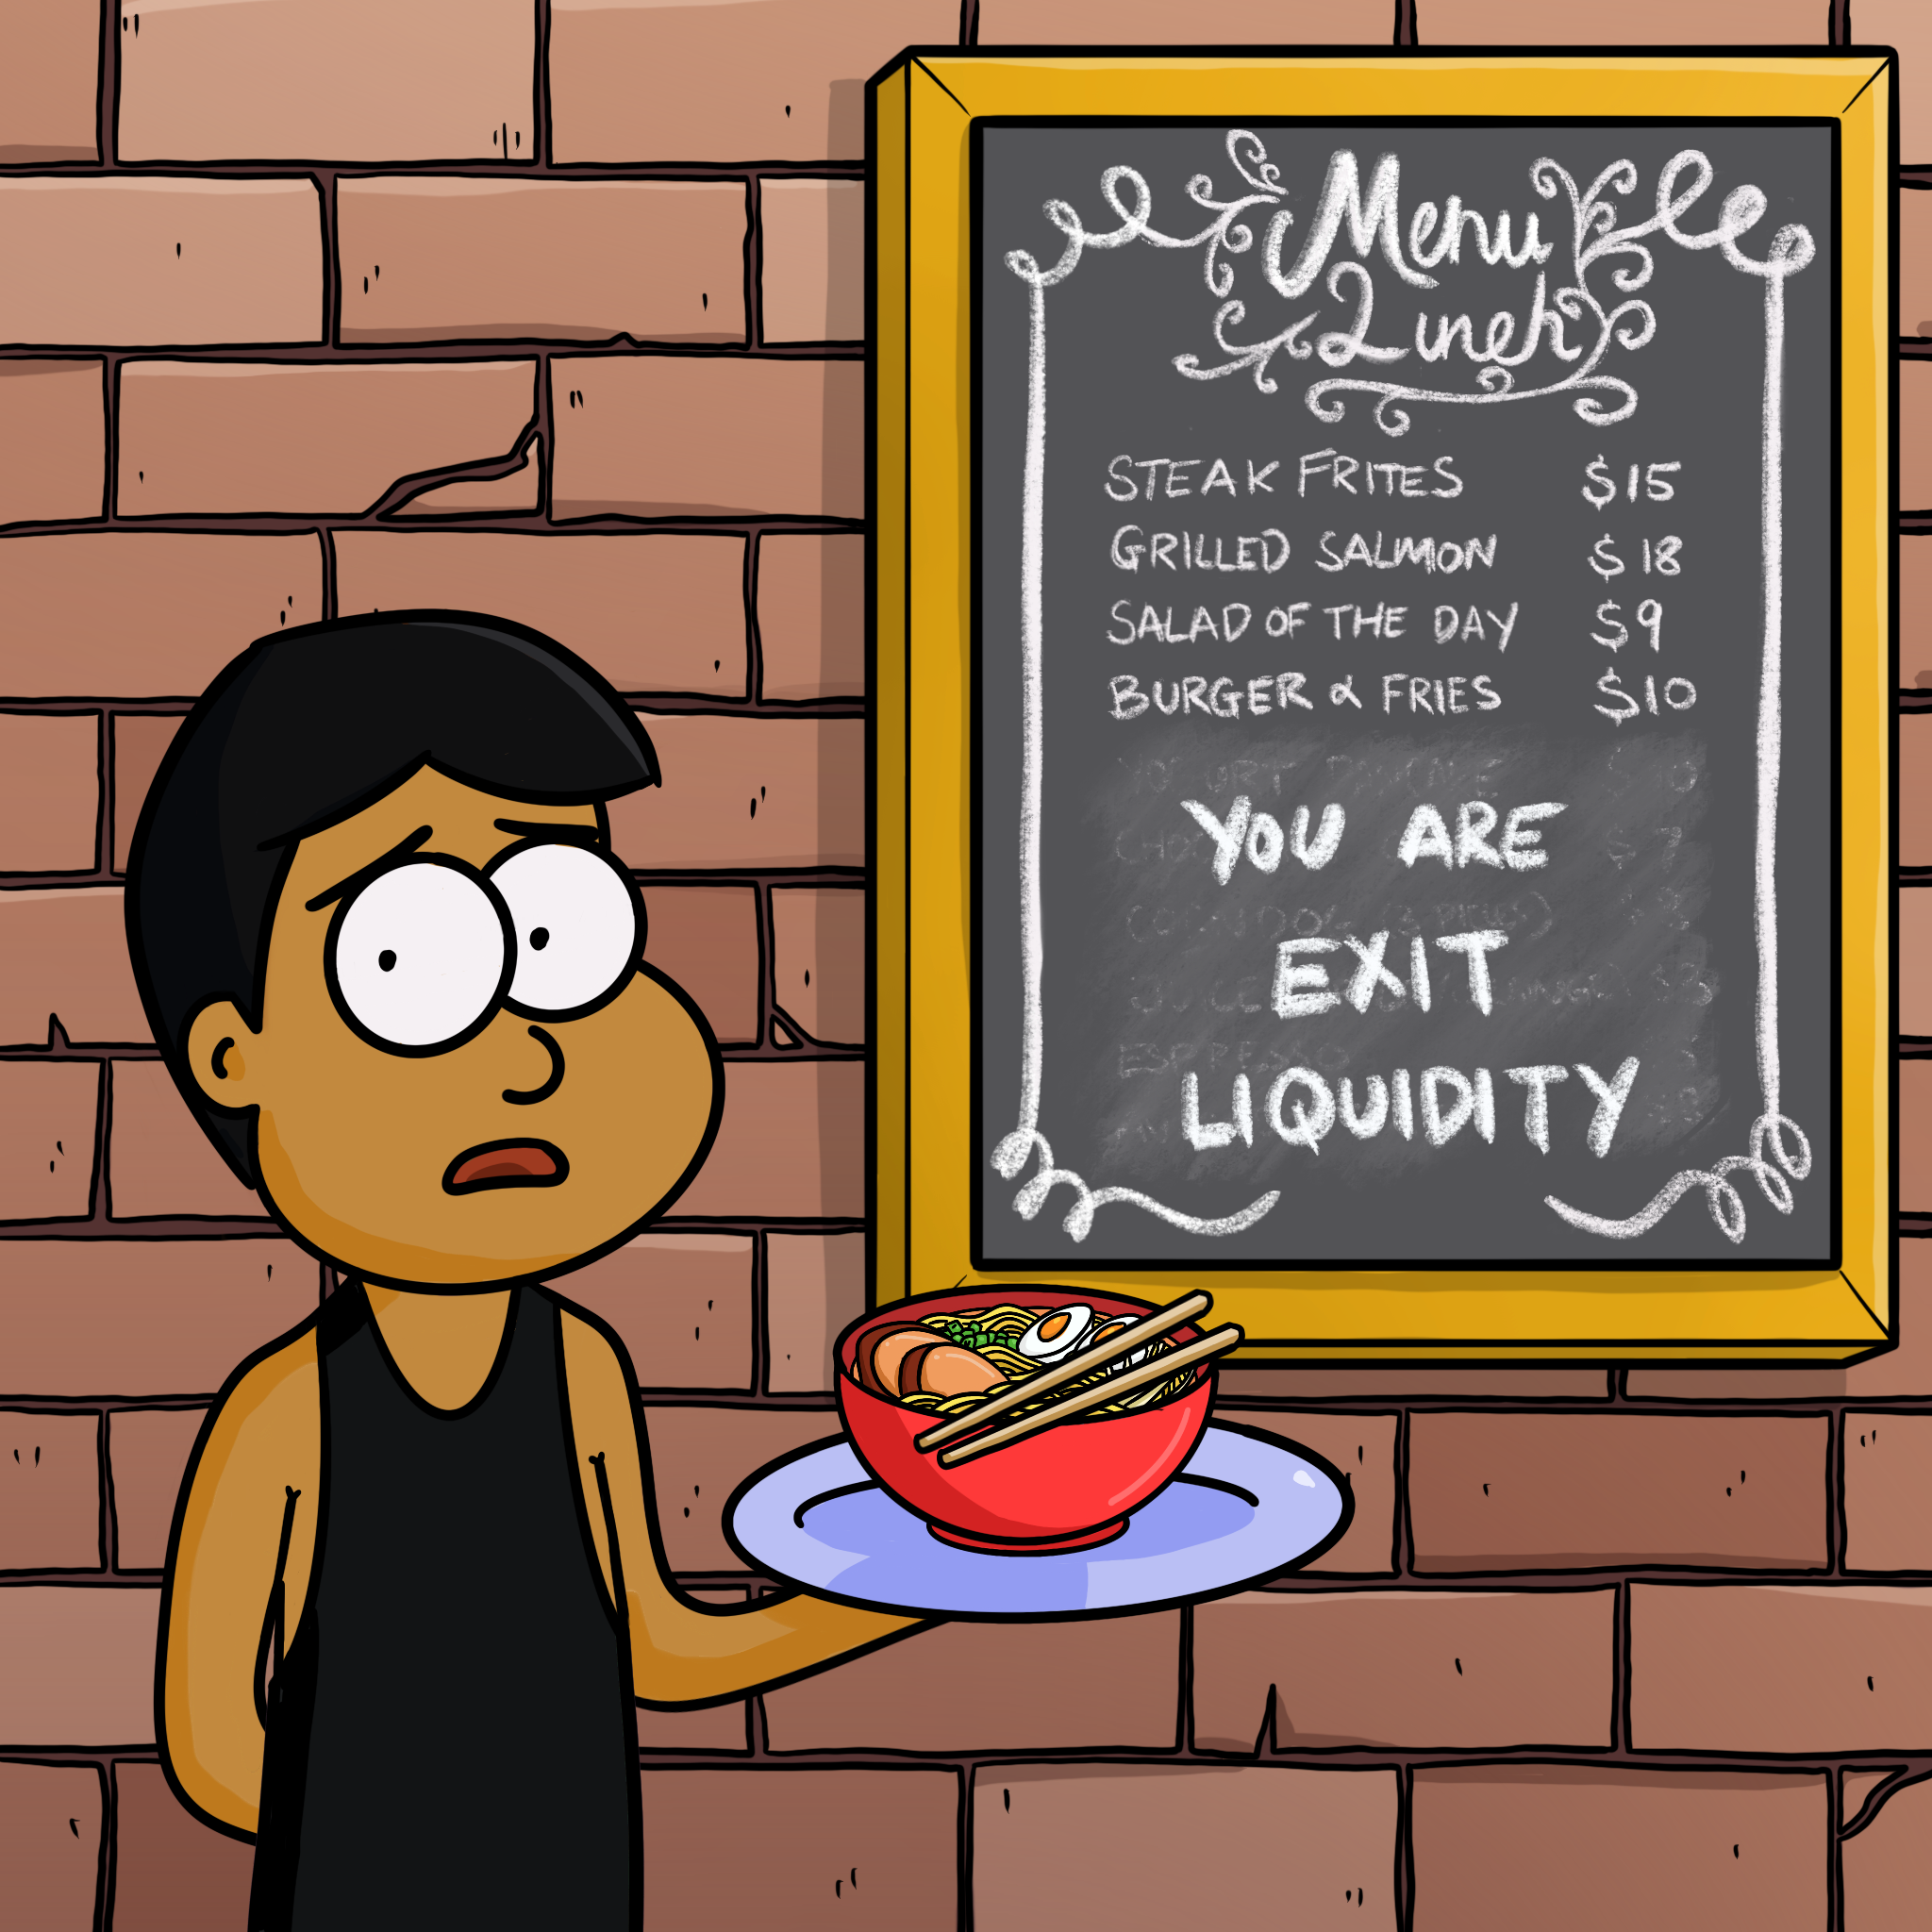 Menu
Lunch
STEAK FRITES $15
GRILLED SALMON $18
SALAD OF THE DAY $9
BURGER & FRIES $10
YOU ARE
EXIT
ESPRESSO
LIQUIDITY